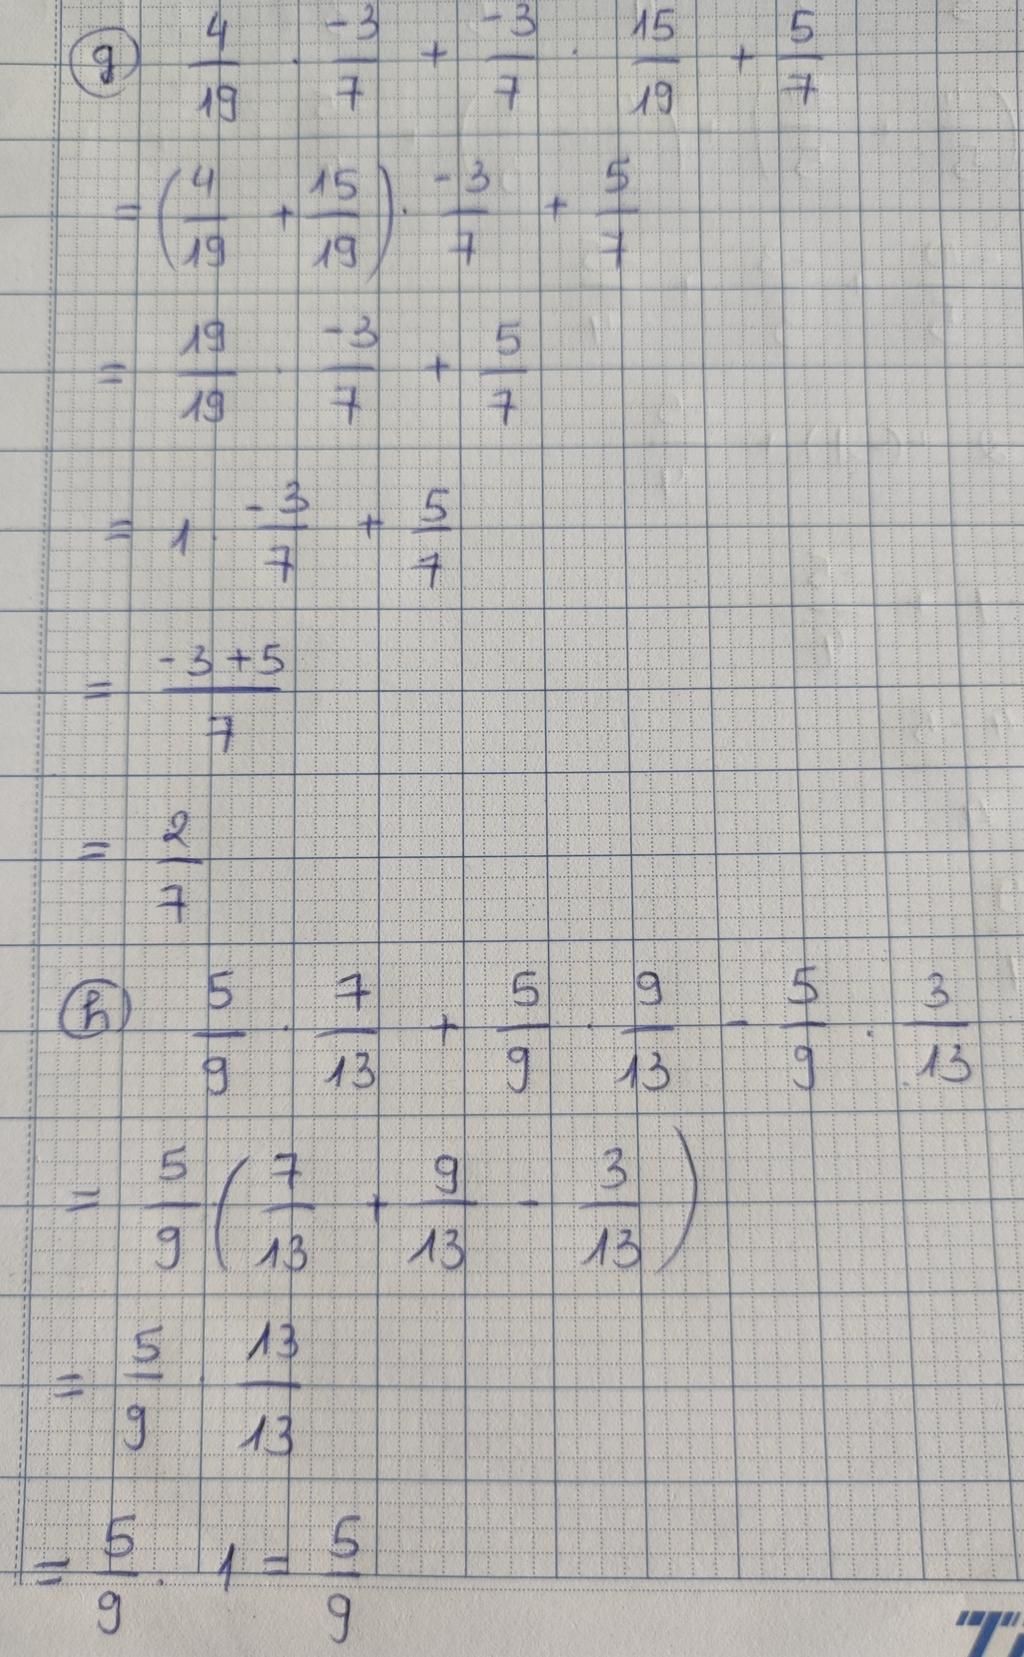 g) 4/19 . -3/7 + -3/7 . 15/19 + 5/7
= (4/19 + 15/19) . -3/7 + 5/7
= 19/19 . -3/7 + 5/7
= 1 . -3/7 + 5/7
= -3+5/7
= 2/7
h) 5/9 . 7/13 + 5/9 . 9/13 - 5/9 . 3/13
= 5/9 (7/13 + 9/13 - 3/13)
= 5/9 . 13/13
= 5/9 . 1 = 5/9